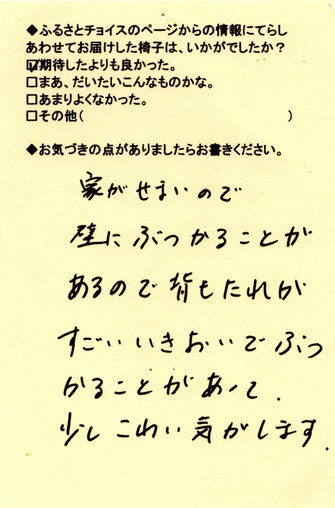 ◆ふるさとチョイスのページからの情報にてらし
あわせてお届けした椅子は、いかがでしたか？
☑期待したよりも良かった。
□まあ、だいたいこんなものかな。
□あまりよくなかった。
□その他(　　　　　　　　　　　　　　　)
◆お気づきの点がありましたらお書きください。
家がせまいので
壁にぶつかることが
あるので背もたれが
すごいいきおいでぶつ
かることがあって.
少しこわい気がします.